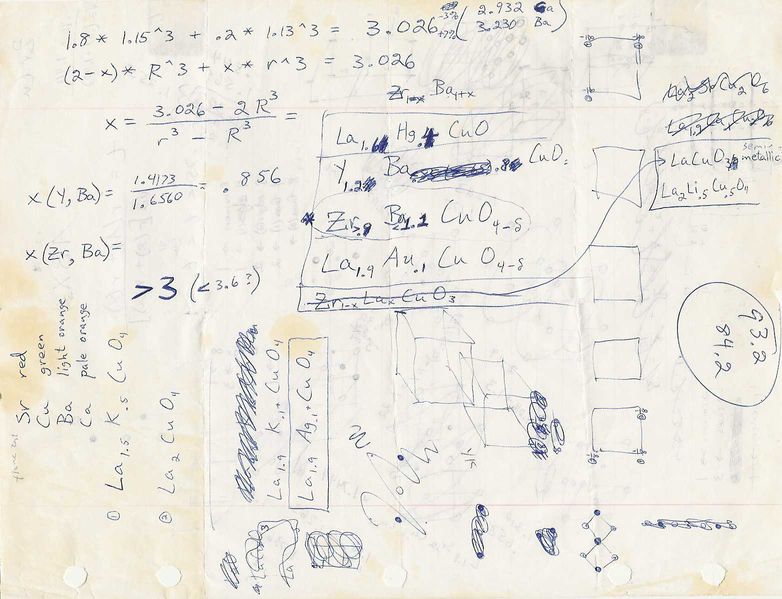 1.8 * 1.15^3 + .2 * 1.13^3 = 3.026
-3% (2.932 Ca
+7% 3.230 Ba)
(2-x)* R^3 + x * r^3 = 3.026
x = 3.026 - 2R^3 / r^3 - R^3 =
x(Y, Ba) = 1.4173 / 1.6560 = .856
x(Zr, Ba) =
>3 (<3.6?)
Zr1-x Ba1+x
La1.6 Hg.4 CuO
Y1.2 Ba .8 CuO
* Zr.9 Ba1.1 CuO4-δ
La1.9 Au.1 CuO4-δ
Zr1-x LaxCuO3
LaCuO3
semi-
metallic
La2Li.5Cu.5O4
93.2
84.2
Sr red
Cu green
Ba light orange
Ca pale orange
① La1.5 K.5 CuO4
② La2 CuO4
La1.9 K.1+ CuO4
La1.9 Ag.1+ CuO4